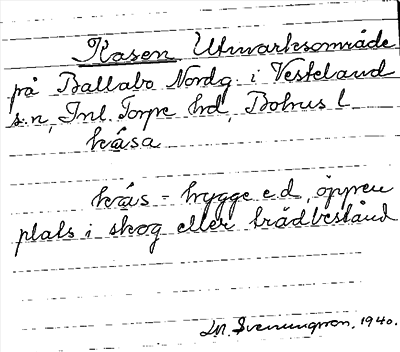 Kasen Utmarksområde
på Ballabo Nordg. i Vesteland
s:n, Inl. Torpe hd, Bohus l.
kåsa
kås - hygge e.d., öppen
plats i skog eller trädbestånd
M. Svenungsson, 1940.